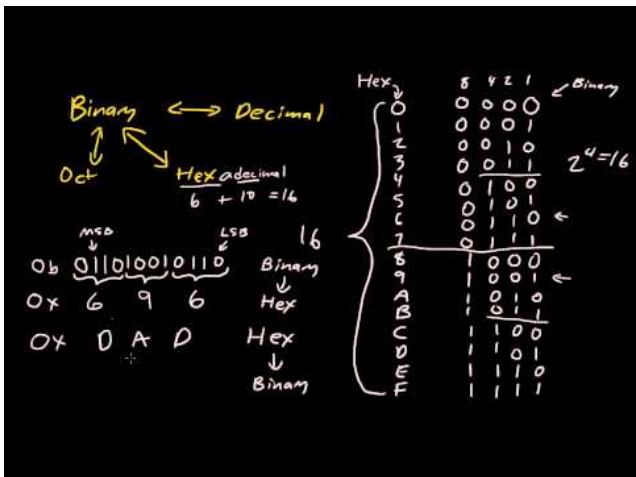 Binary ↔ Decimal
Oct
Hexadecimal
6 + 10 = 16
MSB LSB
0b 011010010110 Binary
↓
0x 6 9 6 Hex
0x D A D Hex
↓
Binary
16
Hex 8 4 2 1 Binary
0 0 0 0 0
1 0 0 0 1
2 0 0 1 0
3 0 0 1 1
2⁴=16
4 0 1 0 0
5 0 1 0 1
6 0 1 1 0 ←
7 0 1 1 1
8 1 0 0 0
9 1 0 0 1 ←
A 1 0 1 0
B 1 0 1 1
C 1 1 0 0
D 1 1 0 1
E 1 1 1 0
F 1 1 1 1